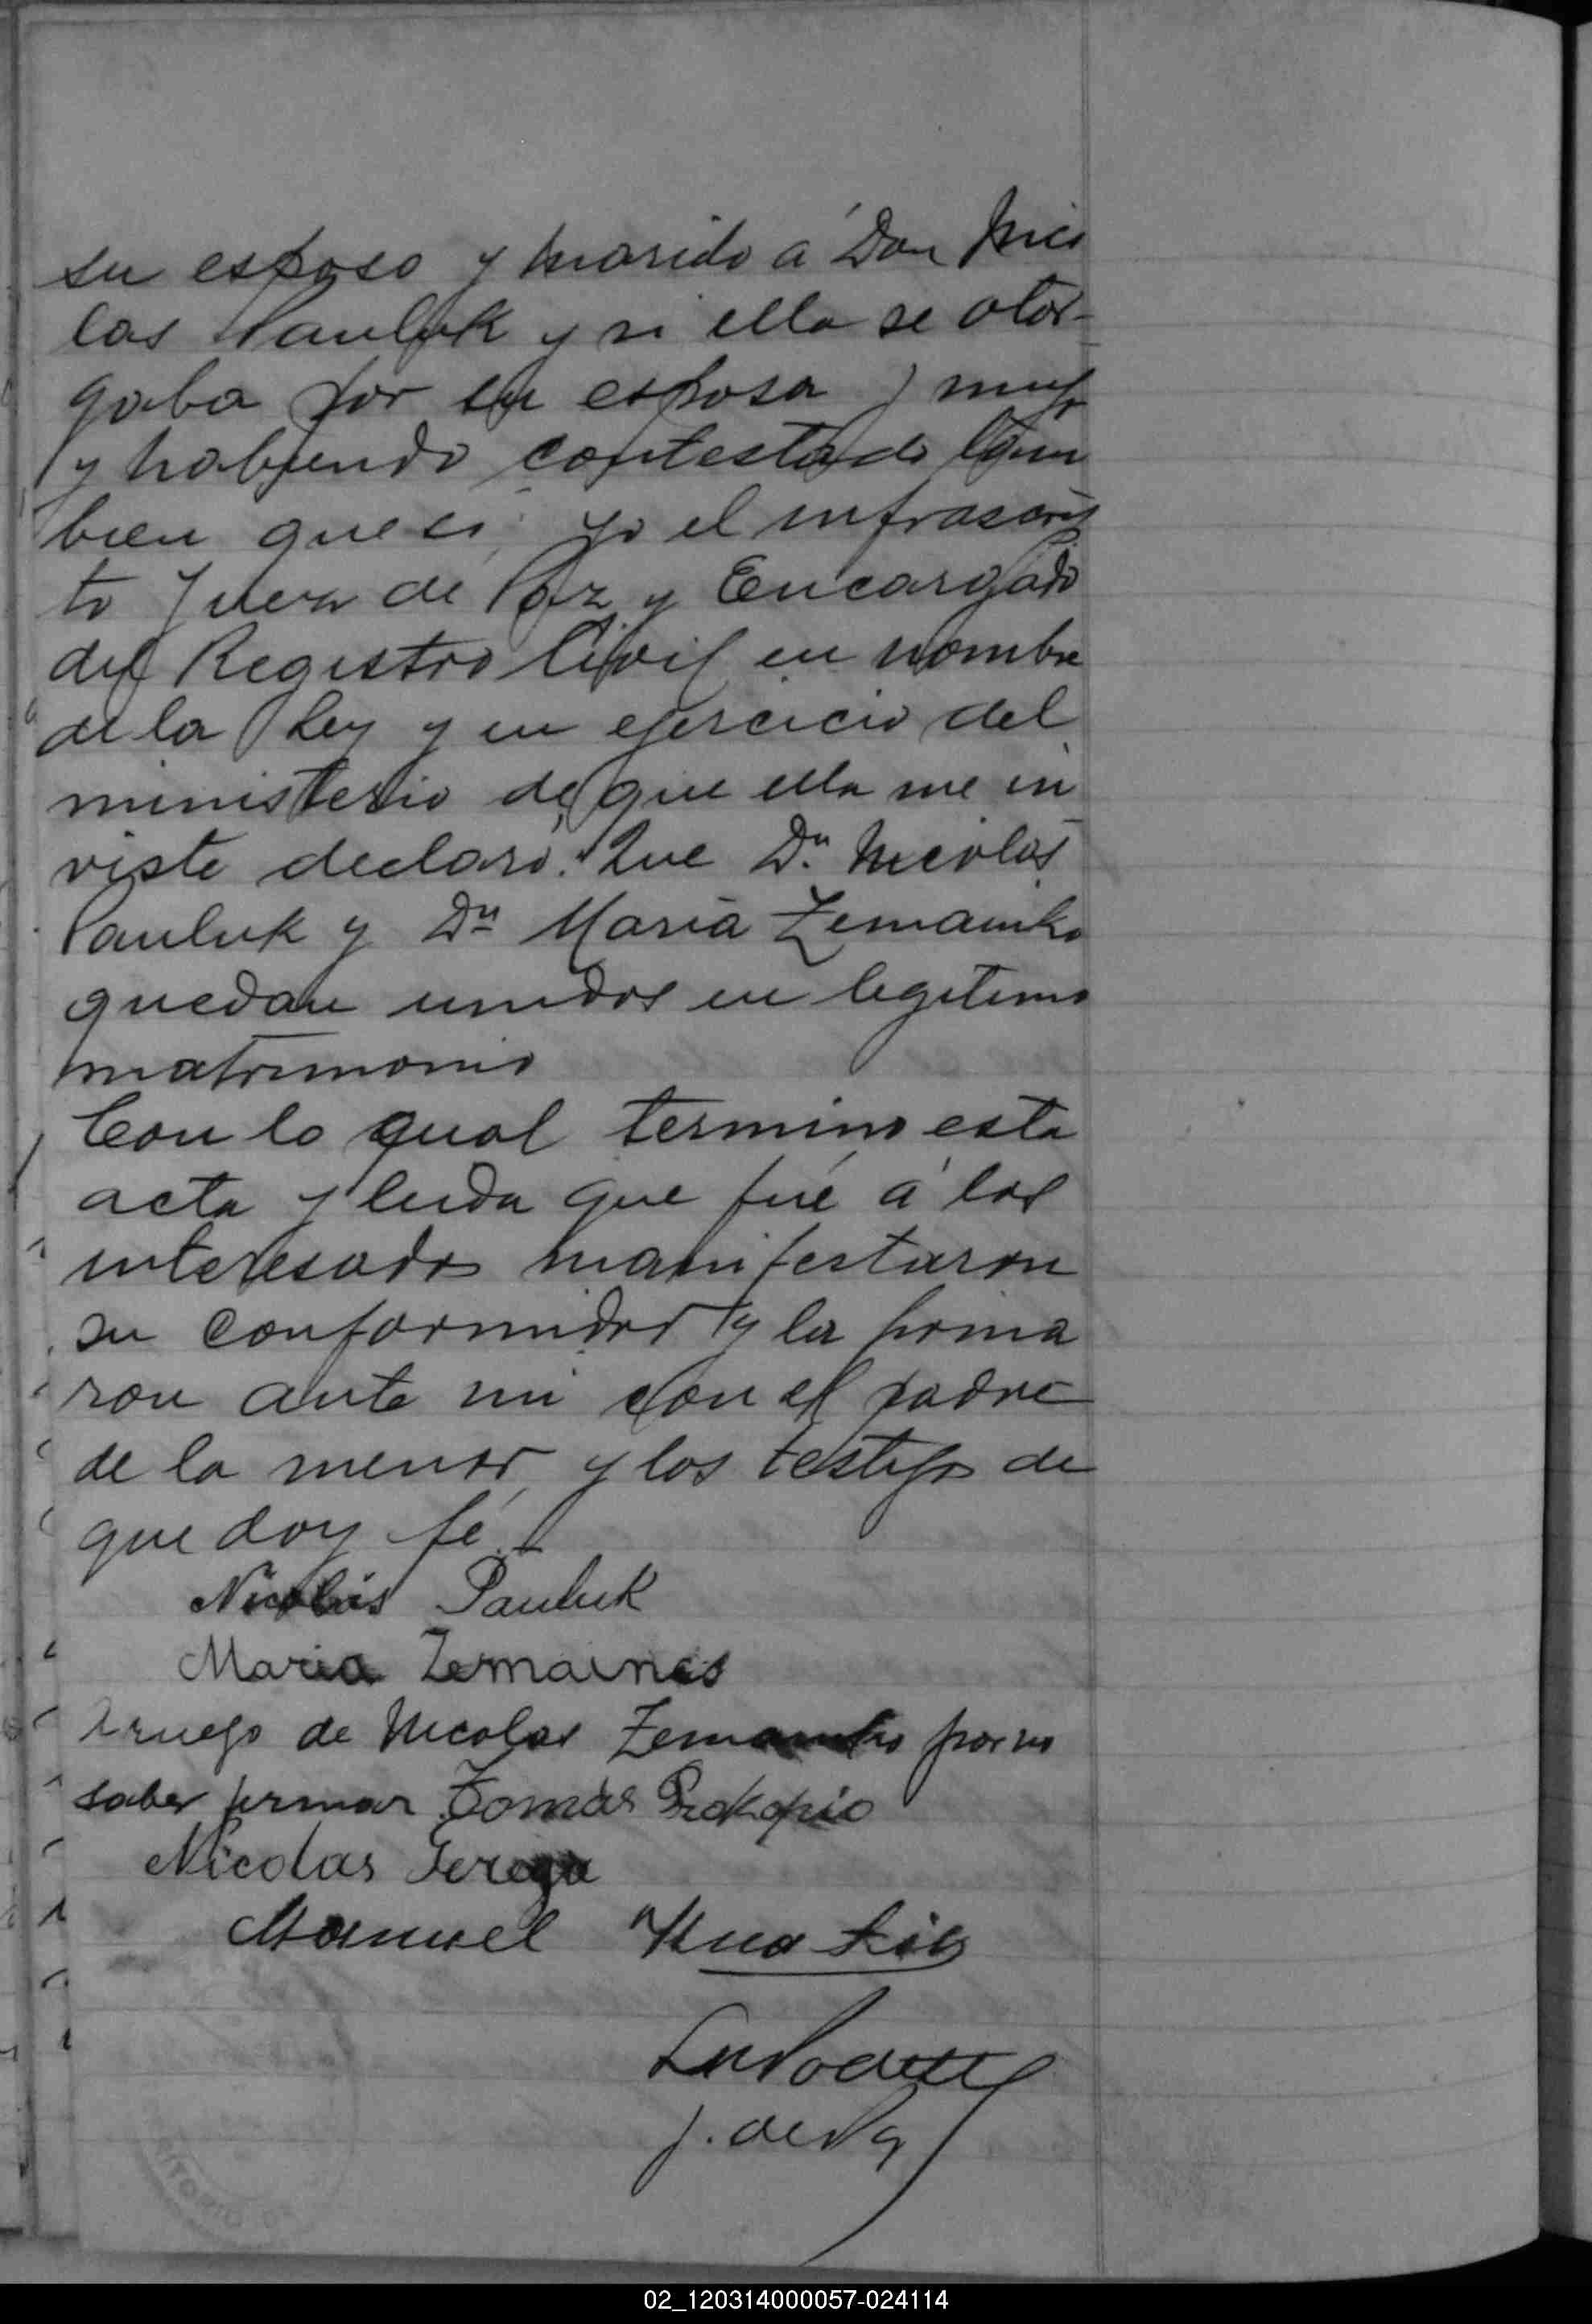 su esposo y marido a Don Nico
las Pauluk y si ella se otor-
gaba por su esposa y mujr
y habiendo contestado tam
bien que si, yo el infrascrip
to Juez de Paz y Encargado
del Registro Civil en nombre
de la Ley y en ejercicio del
ministerio de que ella me in
viste declaro: Que Dn. Nicolas
Pauluk y Dn Maria Zemainko
quedan unidos en legitimo
matrimonio
Con lo qual termino esta
acta y leida que fué á los
interesados manifestaron
su conformidad y la firma
ron ante mi con el padre
de la menor, y los testigos de
que doy fé.
Nicolás Pauluk
Maria Zemaines
A ruego de Nicolas Zemainko por no
saber firmar Tomás Prokopio
Nicolas Gerega
Manuel
J. de Paz
02_120314000057-024114